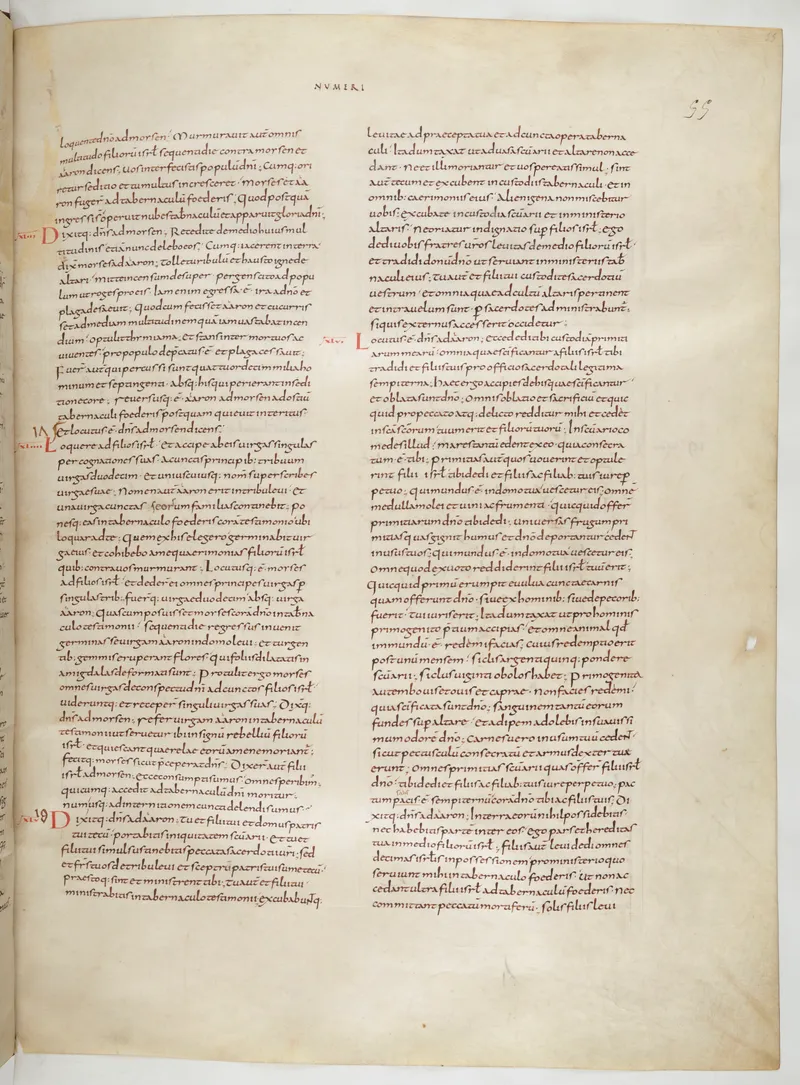 NUMERI
55
loquente dño ad morsen; Murmurauit aut̄ omnis
multitudo filiorū isrł sequenti die contra morsen et
aaron dicens; uos interfecistis populū dñi; Cumq: ori
retur seditio et tumultus incresceret morses et aa
ron fuger ad tabernaculū foederis; Quod postquā
ingressi s̄ operuit nubes tabnaculū et apparuit gloria dñi;
Dixitq: dñs ad morsen; Recedite de medio huius mul
titudinis etiā nunc delebo eos; Cumq: iacerent in terra
dix̄ morses ad aaron; tolle turibulū et hausto igne de
altari mitte incensum desuper pergens cito ad popu
lum ut roges pro eis; Iam enim egressa ē ira a dño et
plaga deseuit; Quod cum fecisset aaron et cucurris
set ad mediam multitudinem quā iam uastabat incen
dium optulit thimiama; et stans inter mortuos ac
uiuentes pro populo dep̄catus ē et plaga cessauit;
Fuer̄ aut̄ qui percussi sunt quattuordecim milia ho
minum et septingenta absq: his qui perierant in sedi
tione core; reuersusq: ē aaron ad morsen ad ostiū
tabernaculi foederis postquam quieuit interitus
et locutus ē dñs ad morsen dicens;
Loquere ad filios isrł et accipe ab eis uirgas singulas
per cognationes suas a cunctis principib: tribuum
uirgas duodecim et uniuscuiusq: nom̄ superscribes
uirgae suae; Nomen aut̄ aaron erit in tribu leui et
una uirga cunctas seorsum familias continebit; po
nesq: eas in tabernaculo foederis corā testimonio ubi
loquar ad te; Quem ex his elegero germinabit uir
ga eius et cohibebo a me quaerimonias filiorū isrł
quib: contra uos murmurant; Locutusq: ē morses
ad filios isrł et dedert ei omnes principes uirgas p
singulas trib:; fuerq: uirgae duodecim absq: uirga
aaron; Quas cum posuisset morses corā dño in tabna
culo testimonii sequenti die regressus inuenit
germinasse uirgam aaron in domo leui; et turgen
tib: gemmis eruperant flores qui foliis dilatatis in
amigdalas deformati sunt; protulit ergo morses
omnes uirgas de conspectu dñi ad cunctos filios isrł
uideruntq: et receper singuli uirgas suas; Dixitq:
dñs ad morsen; refer uirgam aaron in tabernaculū
testimonii ut seruetur ibi in signū rebelliū filiorū
isrł et quiescant quaerelae eorū a me ne moriant;
fecitq: morses sicut p̄ceperat dñs; Dixer̄ aut̄ filii
isrł ad morsen; ecce consumpti sumus omnes peribim;
quicumq: accedit ad tabernaculū dñi moritur
num usq: ad internitionem cuncti delendi sumus
Dixitq: dñs ad aaron; tu et filii tui et domus patris
tui tecū portabitis iniquitatem scuarii et tu et
filii tui simul sustinebitis peccata sacerdotii uri; sed
et frēs tuos de tribu leui et sceptrū patris tui sume tecū
praestoq: sint et ministrent tibi; tu aut̄ et filii tui
ministrabitis in tabernaculo testimonii excubabuntq:
leuitae ad praecepta tua et ad cuncta opera taberna
culi Ita dumtaxat ut ad uasa scuarii et altare non acce
dant ne et illi moriantur et uos pereatis simul; sint
aut̄ tecum et excubent in custodiis tabernaculi et in
omnib: caerimoniis eius Alienigena non miscebitur
uobis; excubate in custodia scuarii et in ministerio
altaris ne oriatur indignatio sup filios isrł; ego
dedi uobis fratres uros leuitas de medio filiorū isrł
et tradidi donū dño ut seruiant in ministeriis tab
naculi eius; tu aut̄ et filii tui custodite sacerdotiū
uestrum et omnia quae ad cultū altaris pertinent
et intra uelum sunt p sacerdotes administrabunt;
si quis externus accesserit occidetur;
Locutus ē dñs ad aaron; ecce dedi tibi custodiā primiti
arum mearū omnia quae scificantur a filiis isrł tibi
tradidi et filiis tuis pro officio sacerdotali legitima
sempiterna; haec ergo accipies de his quae scificantur
et oblata sunt dño; Omnis oblatio et sacrificiū et quic
quid pro peccato atq: delicto redditur mihi et cedet
in sca scorum tuum erit et filiorū tuorū; In scuario co
medes illud mares tantū edent ex eo quia consecra
tum ē tibi; primitias aut̄ quas uouerint et optule
rint filii isrł tibi dedi et filiis ac filiab: tuis iure p
petuo; qui mundus ē in domo tua uescetur eis; omne
medullam olei et uini ac frumenti quicquid offer
primitiarum dño tibi dedi; uniuersas frugum pri
mitias quas gignit humus et dño deportantur cedent
in usus tuos; qui mundus ē in domo tua uescetur eis;
Omne quod ex uoto reddiderint filii isrł tuū erit;
Quicquid primū erumpit e uulua cunctae carnis
quam offerunt dño siue ex hominib: siue de pecorib:
fuerit tui iuris erit; Ita dumtaxat ut pro hominis
primogenito p̄tium accipias et omne animal qd
inmundū ē redemi facias; cuius redemptio erit
post unū mensem siclis argenti quinq: pondere
scuarii; siclus uiginti obolos habet; primogenitū
autem bouis et ouis et caprae non facies redemi
quia scificata sunt dño; sanguinem tantū eorum
fundes sup altare et adipem adolebis in suauissi
mum odorē dño; Carnes uero in usum tuū cedent
sicut pectusculū consecratū et armus dexter tua
erunt; omnes primitias scuarii quas offer filii isrł
dño tibi dedi et filiis ac filiab: tuis iure perpetuo; pac
tum pacis ē sempiternū corā dño tibi ac filiis tuis; Di
xitq: dñs ad aaron; In terra eorū nihil possidebitis
nec habebitis partē inter eos ego pars et hereditas
tua in medio filiorū isrł; filiis aut̄ leui dedi omnes
decimas isrłis in possessionem pro ministerio quo
seruiunt mihi in tabernaculo foederis ut non ac
cedant ultra filii isrł ad tabernaculū foederis nec
committant peccatū mortiferū; solis filiis leui